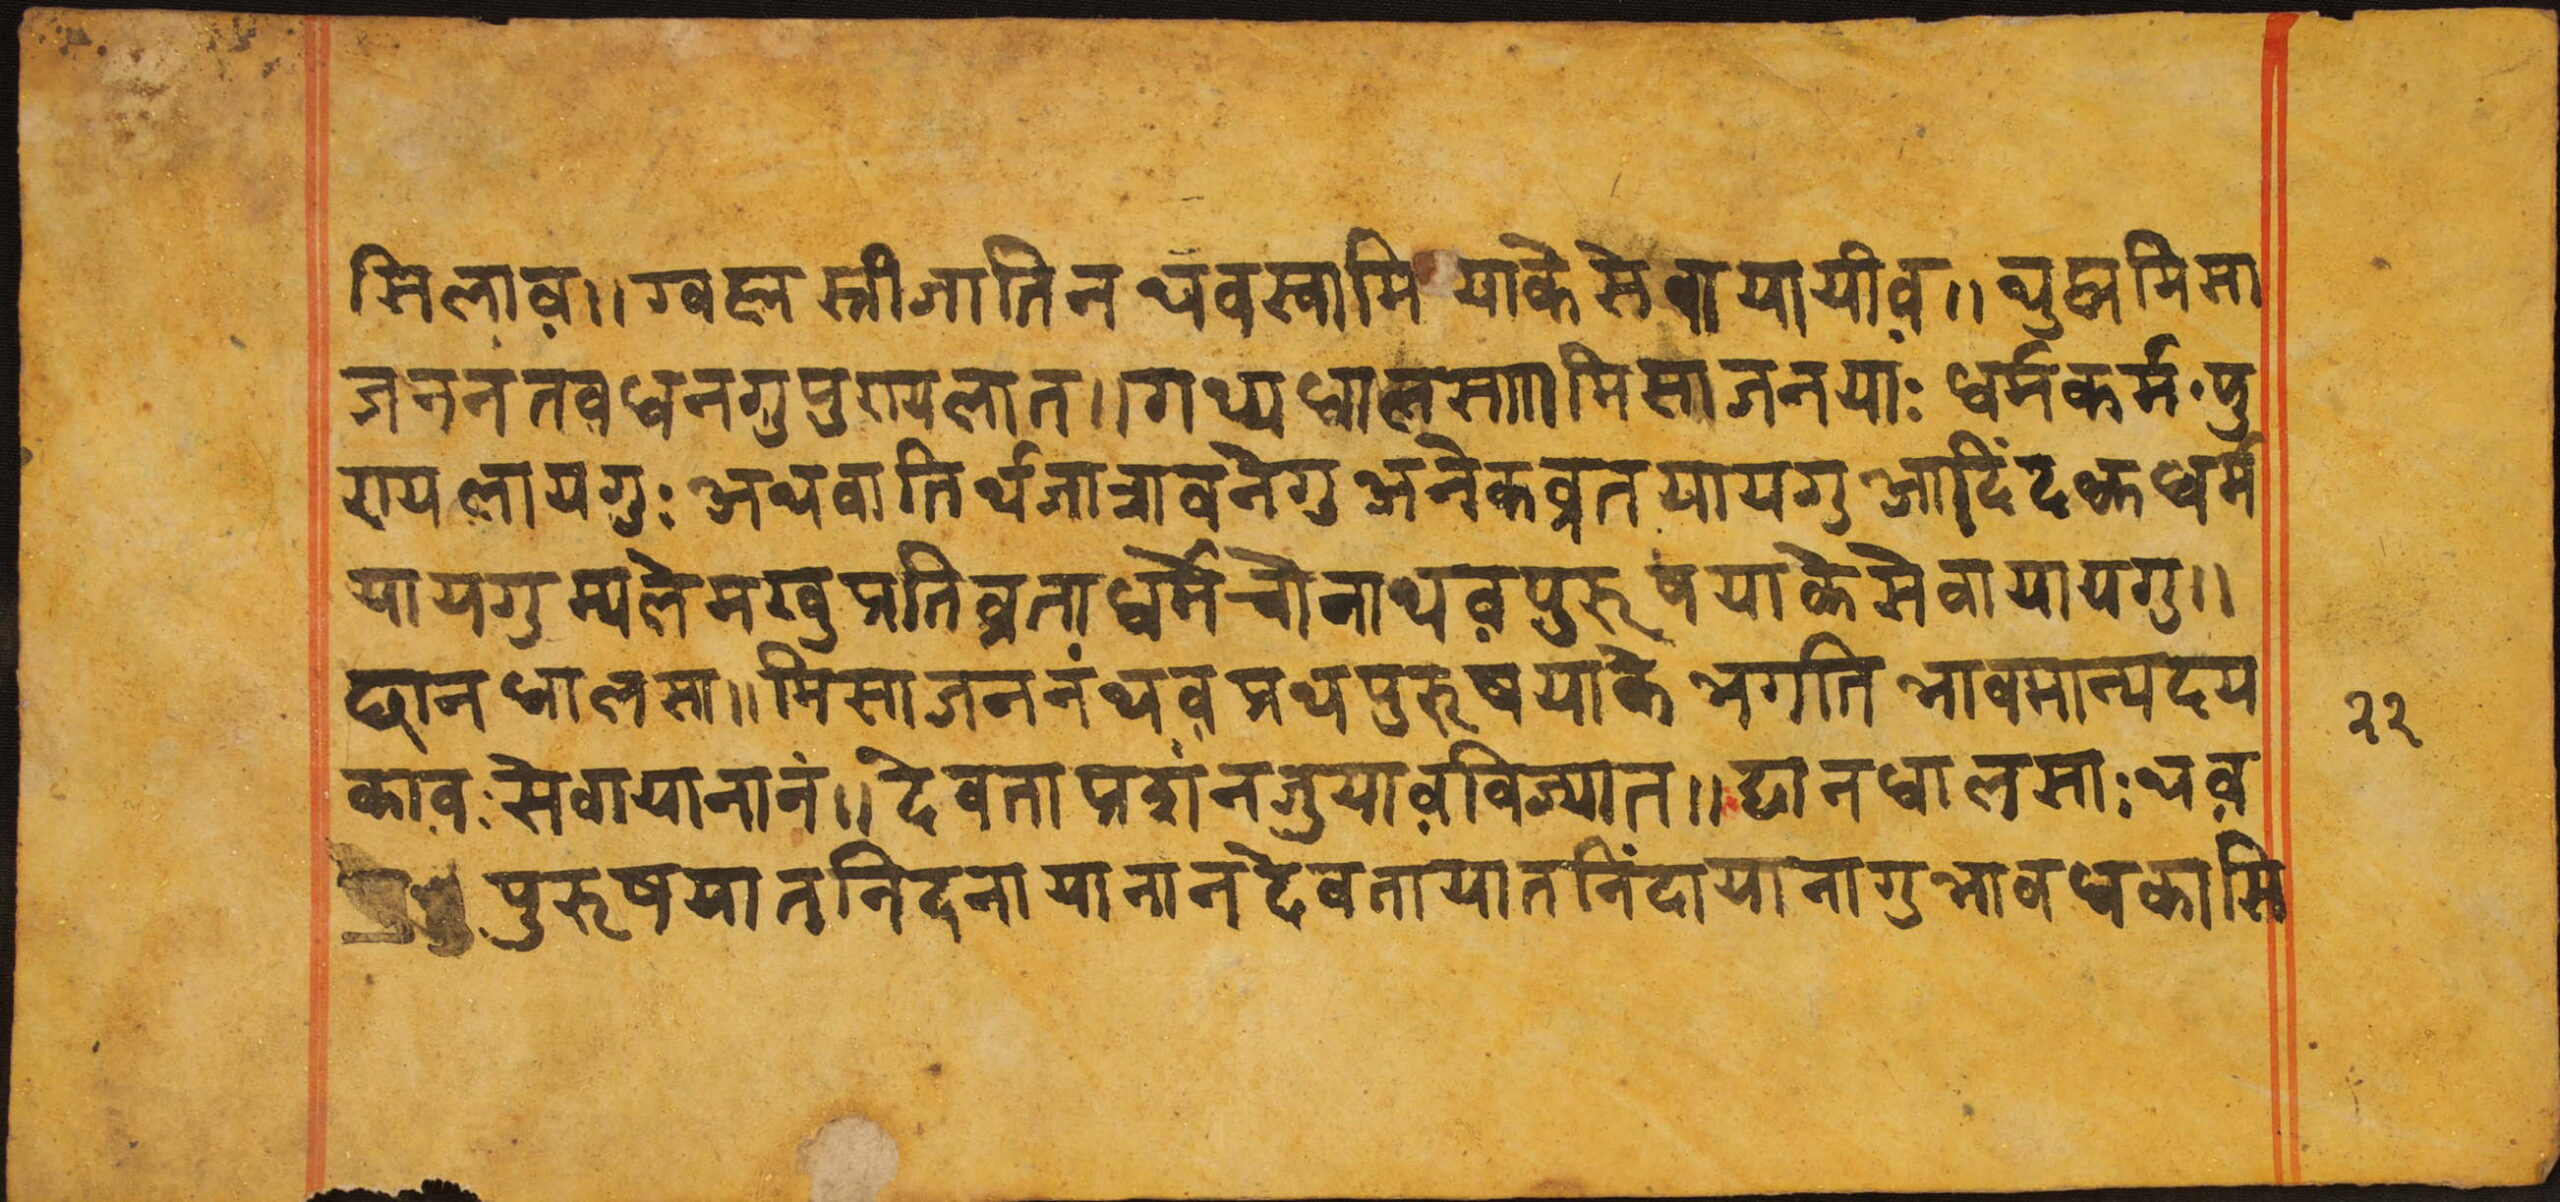 मिलाव़॥ ग्वह्म स्त्रीजातिन थवस्वामि याके सेवायायीव़॥ थुह्म मिसा
जननं तवधनगु पुण्यलात॥ गथ्य धालसा॥ मिसाजनयाः धर्मकर्म पु
ण्यलायगुः अथवा तिर्थजात्रावनेगु अनेकव्रतयायगु आदिं दक्व धर्म
यायगु म्यलेमखु प्रतिव्रताधर्म चोनाथव़पुरूषयाके सेवायायगु॥
छान धालसा॥ मिसाजननं थव़ प्रथपुरूषयाके भगति भावमान्यदय
काव़ः सेवायानानं॥ देवता प्रशंनजुयाव़ विज्यात॥ छान धालसाः थव़
पुरूषयात निदनायानान देवतायात निंदायानागु भावधका मि
२२